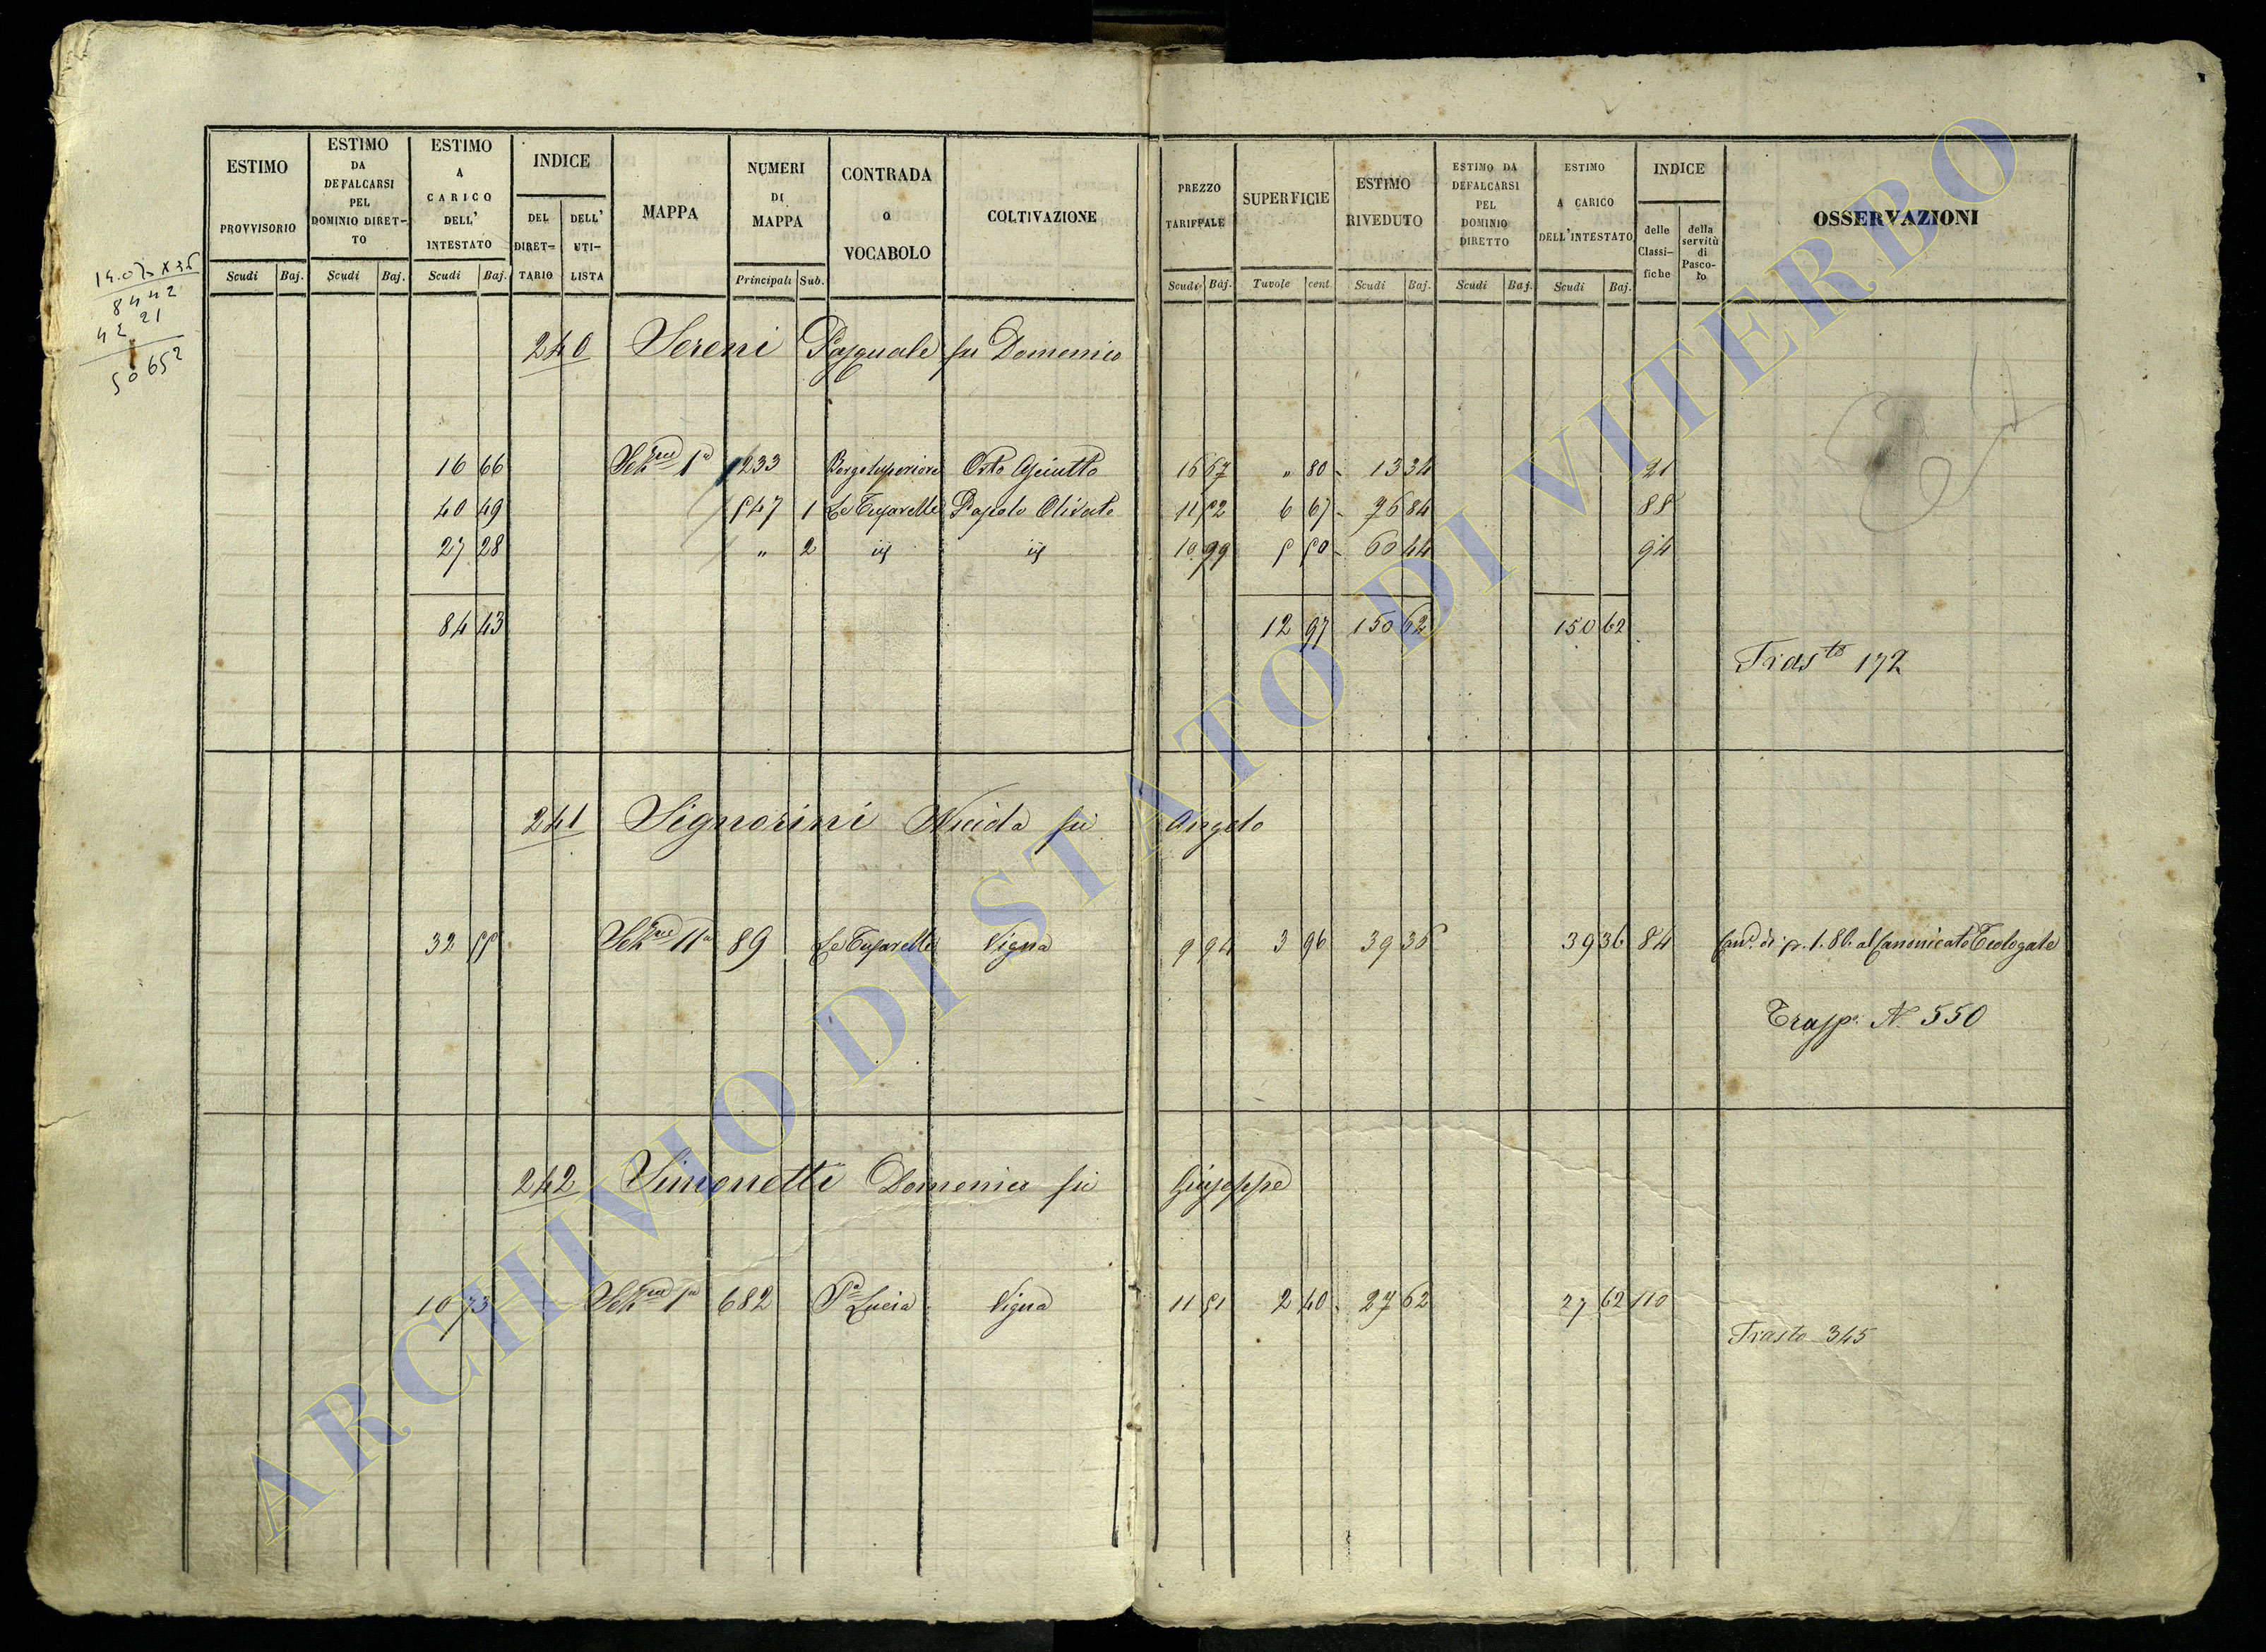 ESTIMO PROVVISORIO
Scudi Baj.
ESTIMO DA DEFALCARSI PEL DOMINIO DIRET- TO
Scudi Baj.
ESTIMO A CARICO DELL' INTESTATO
Scudi Baj.
INDICE
DEL DIRET- TARIO
DELL' UTI- LISTA
MAPPA
NUMERI DI MAPPA
Principali Sub.
CONTRADA O VOCABOLO
COLTIVAZIONE
PREZZO TARIFFALE
Scudi Baj.
SUPERFICIE
Tavole cent.
ESTIMO RIVEDUTO
Scudi Baj.
ESTIMO DA DEFALCARSI PEL DOMINIO DIRETTO
Scudi Baj.
ESTIMO A CARICO DELL'INTESTATO
Scudi Baj.
INDICE
delle Classi- fiche
della servitù di Pasco- lo
OSSERVAZIONI
8442
42 21
50652
240 Sereni Pasquale fu Domenico
16 66 Sez.ne 1a 1233 Borgo Superiore Orto Asciutto 16 67 " 80 13 34 21
40 49 547 1 Le Tufarelle Pascolo Olivato 11 52 6 67 76 84 88
27 28 " 2 id id 10 99 5 50 60 44 94
84 43 12 97 150 62 150 62
Trasto 172
241 Signorini Nicida fu Angelo
32 55 Sez.ne 11a 89 Le Tufarelle Vigna 9 94 3 96 39 36 39 36 84 di p. 1.86 al Canonicato Teologale
Trasp. N. 550
242 Simonetti Domenico fu Giuseppe
10 73 Sez.ne 1a 682 Sa Lucia Vigna 11 51 2 40 27 62 27 62 110
Trasto 345
ARCHIVIO DI STATO DI VITERBO